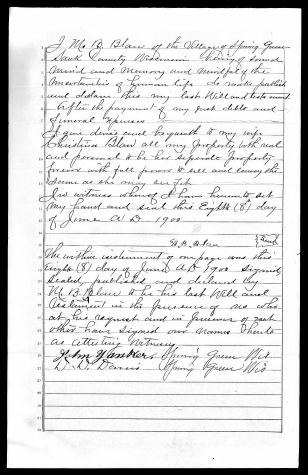 I Mc B. Blair of the Village of Spring Green
Sauk County Wisconsin being of sound
mind and memory and mindful of the
uncertainties of human life do make publish
and declare this my last Will and testament
After the payment of my just debts and
funeral expenses
I give devise and bequeath to my wife
Christina Blair all my property both real
and personal to be her separate property
forever with full power to sell and convey the
same as she may see fit
In witness whereof I have hereunto set
my hand and seal this Eighth (8) day
of June A D 1900
Blair Seal
The within instrument of one page was this
Eighth (8) day of June A D 1900 signed
sealed published and declared by
Mc B. Blair to be his last Will and
testament in the presence of us who
at his request and in presence of each
other have signed our names hereto
as attesting witness
John Yanker, Spring Green Wis
D. D. Davis Spring Green Wis